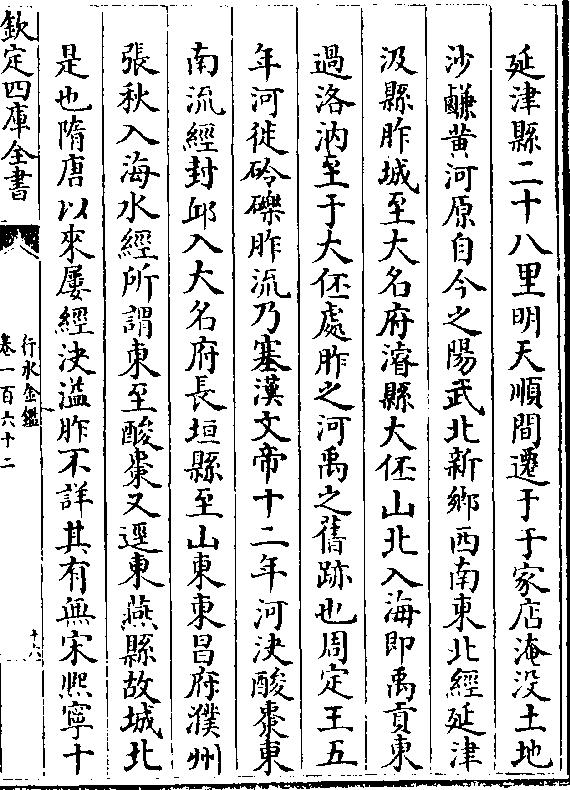 延津縣二十八里明天順間遷于于家店淹没土地
沙鹻黄河原自今之陽武北新鄉西南東北經延津
汲縣胙城至大名府濬縣大伾山北入海即禹貢東
過洛汭至于大伾處胙之河禹之舊跡也周定王五
年河徙砱礫胙流乃塞漢文帝十二年河決酸棗東
南流經封邱入大名府長垣縣至山東東昌府濮州
張秋入海水經所謂東至酸棗又逕東燕縣故城北
是也隋唐以來屢經決溢胙不詳其有無宋熙寧十
欽定四庫全書
行水金鑑
卷一百六十二
十六